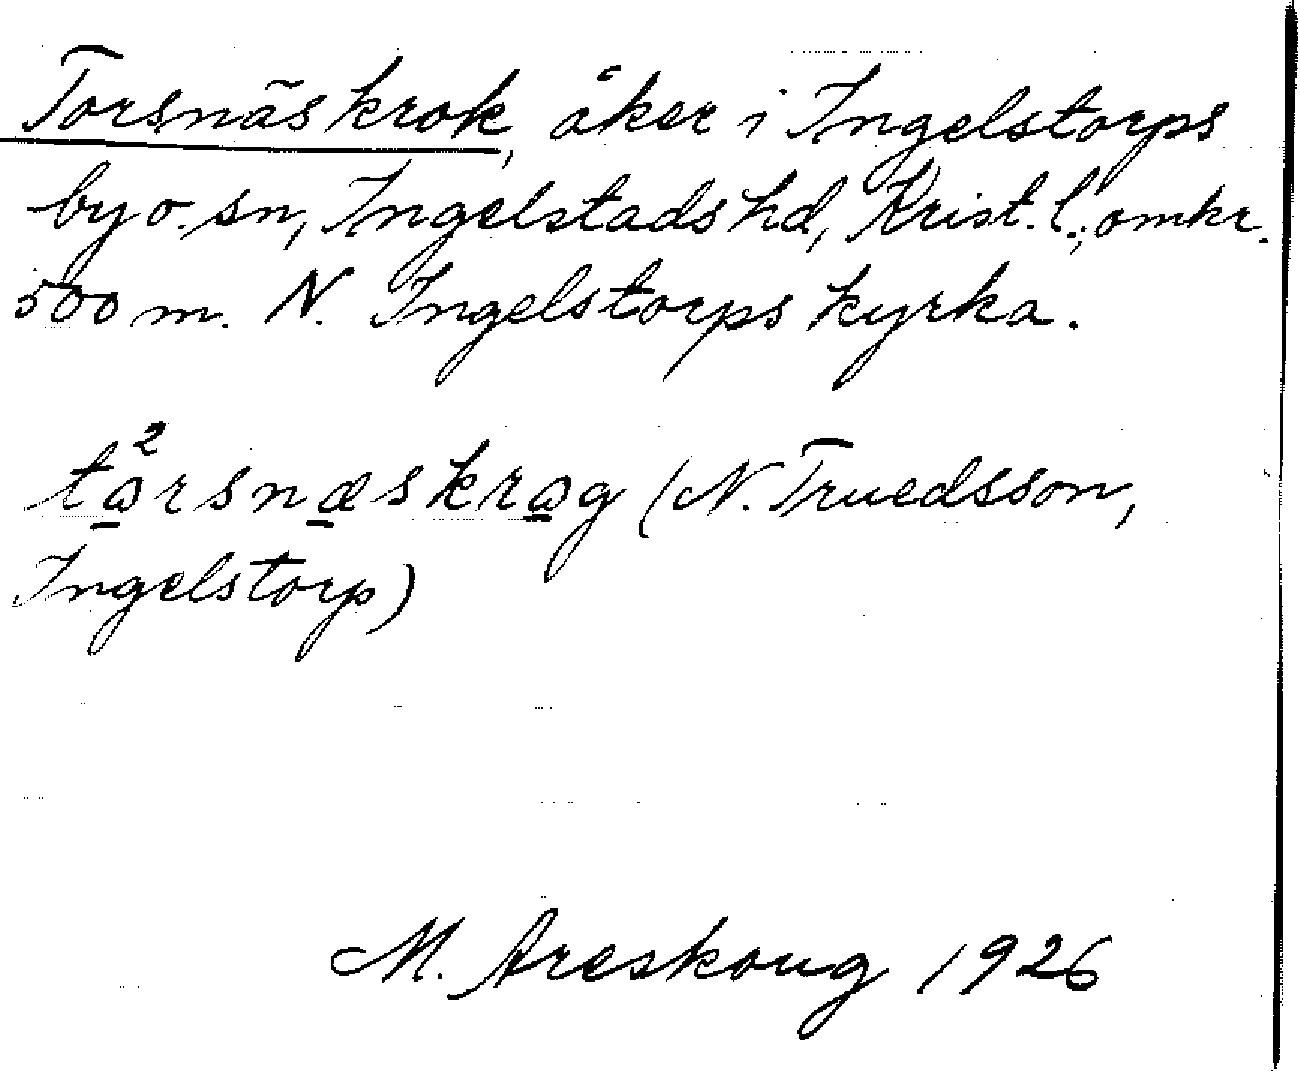 Torsnäs krok, åker i Ingelstorps
by o. sn, Ingelstads hd, Krist. l., omkr.
500 m. N. Ingelstorps kyrka.
tå²rsnæskråg (N. Truedsson,
Ingelstorp)
M. Areskoug 1926